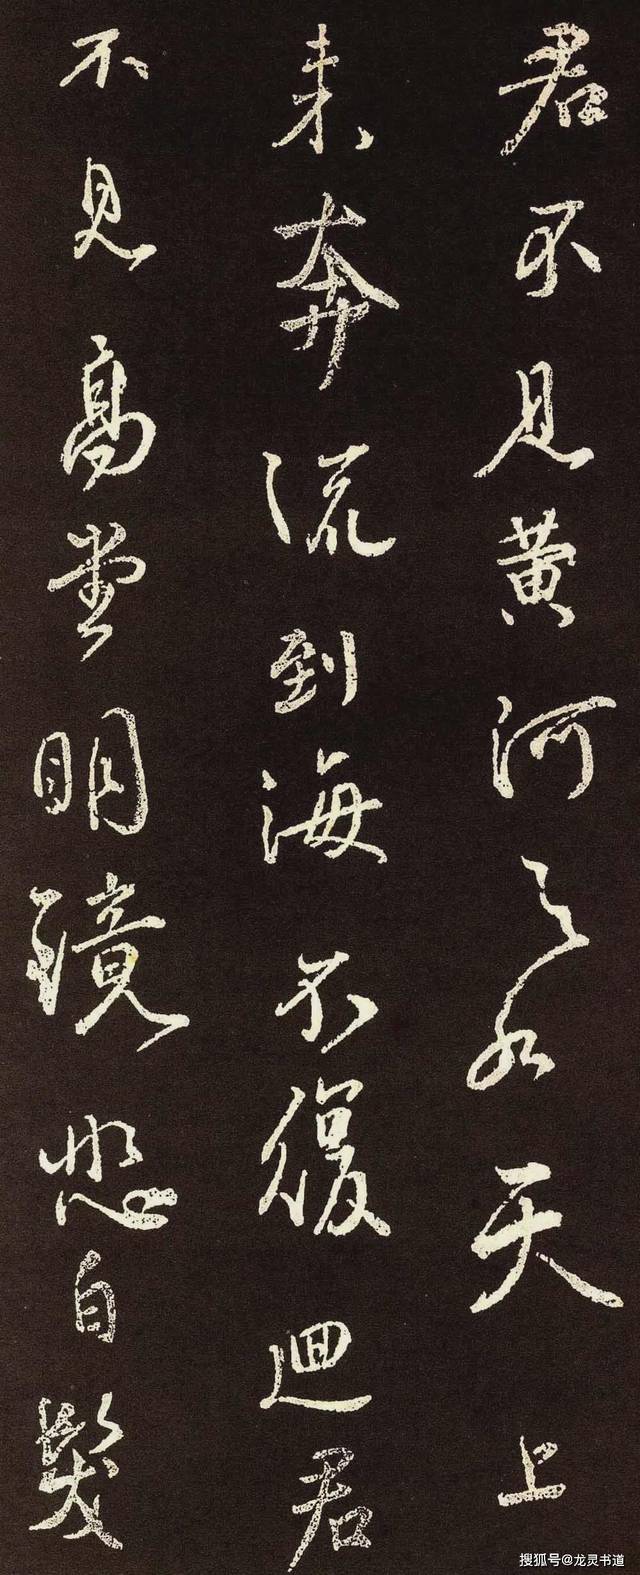 君不見黃河之水天上
来奔流到海不復迴君
不見高堂明鏡悲白髮
搜狐号@龙灵书道